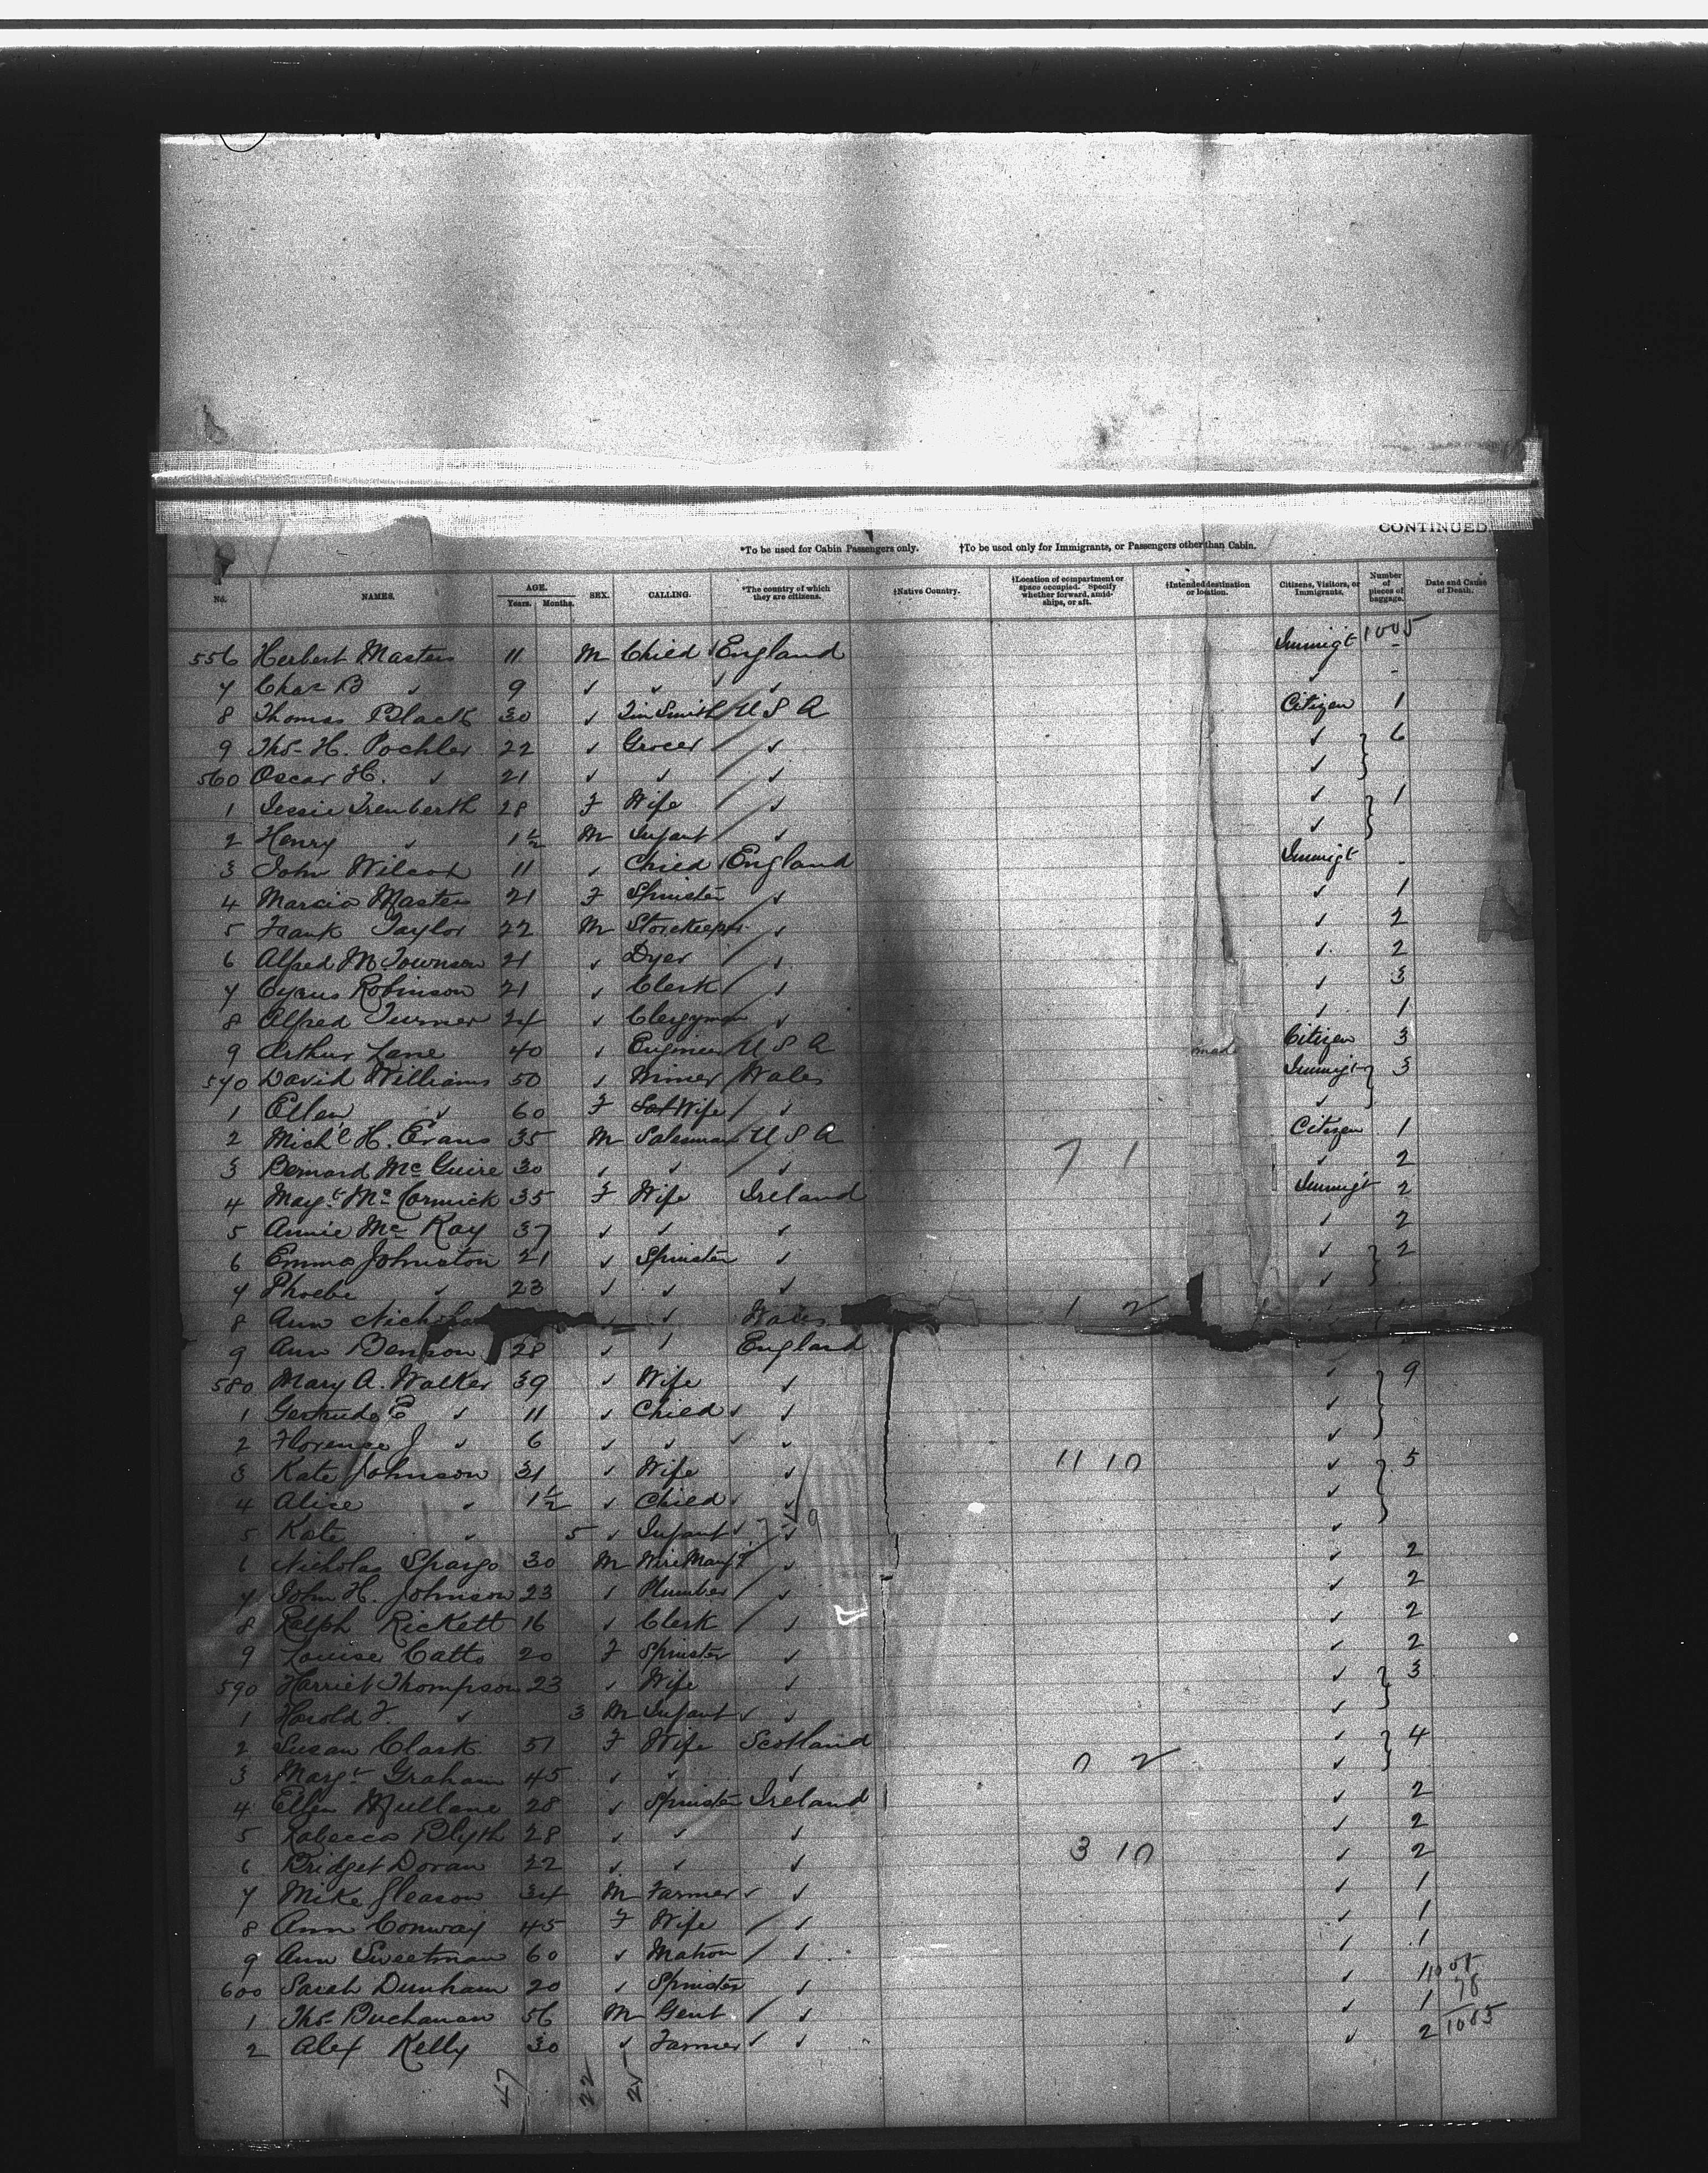 CONTINUED
*To be used for Cabin Passengers only. †To be used only for Immigrants, or Passengers other than Cabin.
No. NAMES. AGE. Years. Months. SEX. CALLING. *The country of which they are citizens. †Native Country. †Location of compartment or space occupied. Specify whether forward, amidships, or aft. †Intended destination or location. Citizens, Visitors, or Immigrants. Number of pieces of baggage. Date and Cause of Death.
1005
556 Herbert Masters 11 M Child England Immigt -
7 Chas B ✓ 9 ✓ ✓ ✓ ✓ -
8 Thomas Black 30 ✓ Tin Smith U S A Citizen 1
9 Thos H. Pochler 22 ✓ Grocer ✓ ✓ 6
560 Oscar H. ✓ 21 ✓ ✓ ✓ ✓
1 Jessie Trenberth 28 F Wife ✓ ✓ 1
2 Henry ✓ 1½ M Infant ✓ ✓
3 John Wilcox 11 ✓ Child England Immigt -
4 Marcia Masters 21 F Spinster ✓ ✓ 1
5 Frank Taylor 22 M Storekeeper ✓ ✓ 2
6 Alfred M Townsen 21 ✓ Dyer ✓ ✓ 2
7 Cyrus Robinson 21 ✓ Clerk ✓ ✓ 3
8 Alfred Turner 24 ✓ Clergyman ✓ ✓ 1
9 Arthur Lane 40 ✓ Engineer U S A Citizen 3
570 David Williams 50 ✓ Miner Wales Immigt 3
1 Ellen ✓ 60 F Wife ✓ ✓
2 Mich'l H. Evans 35 M Salesman U S A Citizen 1
3 Bernard McGuire 30 ✓ ✓ ✓ 7 1 ✓ 2
4 Magt McCormick 35 F Wife Ireland Immigt 2
5 Annie McKay 37 ✓ ✓ ✓ ✓ 2
6 Emma Johnston 21 ✓ Spinster ✓ ✓ 2
7 Phoebe ✓ 23 ✓ ✓ ✓ ✓
8 Ann ✓ Wales 1 2
9 Ann Benson 28 ✓ England
580 Mary A. Walker 39 ✓ Wife ✓ ✓ 9
1 Gertrude E ✓ 11 ✓ Child ✓ ✓
2 Florence J ✓ 6 ✓ ✓ ✓ ✓
3 Kate Johnson 31 ✓ Wife ✓ 11 10 ✓ 5
4 Alice ✓ 1½ ✓ Child ✓ ✓
5 Kate ✓ 5 ✓ Infant ✓ ✓
6 Nicholas Spargo 30 M ✓ ✓ 2
7 John H. Johnson 23 ✓ Plumber ✓ ✓ 2
8 Ralph Rickett 16 ✓ Clerk ✓ ✓ 2
9 Louise Catto 20 F Spinster ✓ ✓ 2
590 Harriet Thompson 23 ✓ Wife ✓ ✓ 3
1 Harold F. ✓ 3 M Infant ✓ ✓
2 Susan Clark 51 F Wife Scotland ✓ 4
3 Margt Graham 45 ✓ ✓ ✓ 0 2 ✓
4 Ellen Mullane 28 ✓ Spinster Ireland ✓ 2
5 Rebecca Blyth 28 ✓ ✓ ✓ ✓ 2
6 Bridget Doran 22 ✓ ✓ ✓ 3 10 ✓ 2
7 Mike Gleason 34 M Farmer ✓ ✓ 1
8 Ann Conway 45 F Wife ✓ ✓ 1
9 Ann Sweetman 60 ✓ Matron ✓ ✓ 1
600 Sarah Dunham 20 ✓ Spinster ✓ ✓ 1
1 Thos Buchanan 56 M Gent ✓ ✓ 1 78
2 Alex Kelly 30 ✓ Farmer ✓ ✓ 2 1085
47 22 25